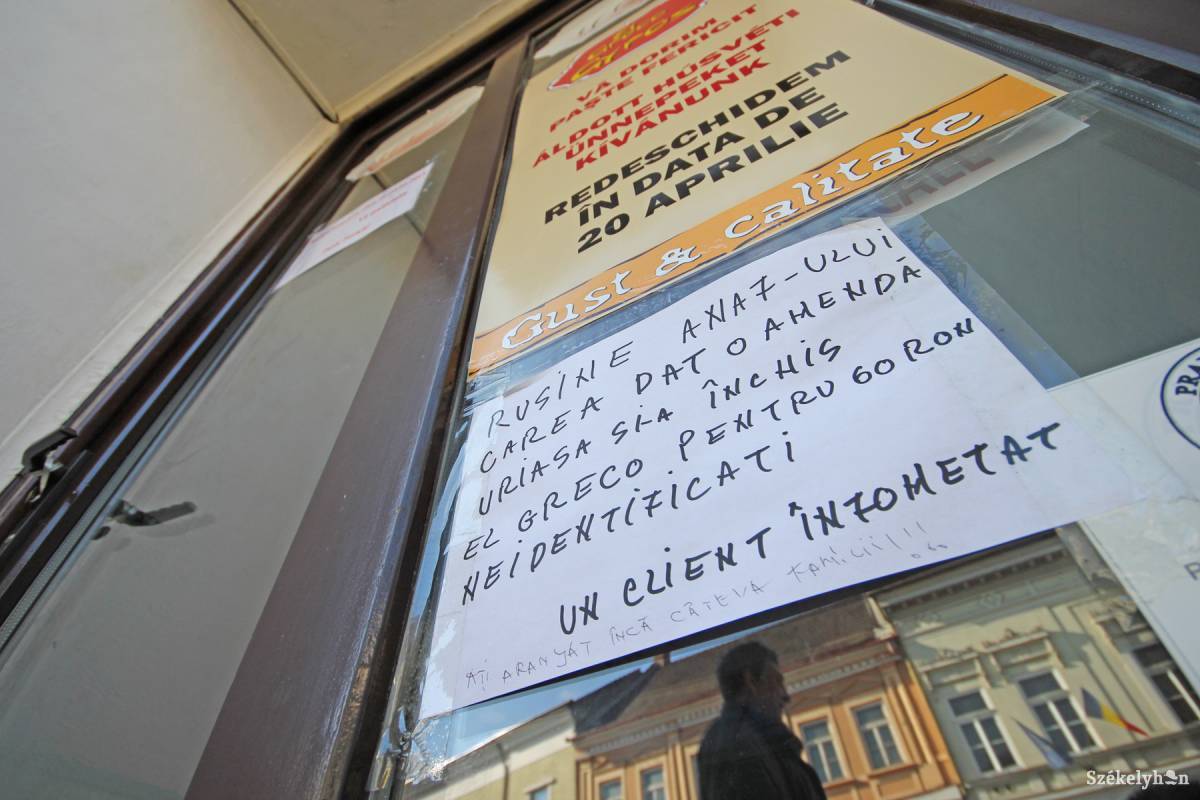 VĂ DORIM
PAȘTE FERICIT
ÁLDOTT HÚSVÉTI
ÜNNEPEKET
KÍVÁNUNK
REDESCHIDEM
ÎN DATA DE
20 APRILIE
Gust & calitate
RUSINE ANAF-ULUI
CAREA DAT O AMENDĂ
URIASA SI-A ÎNCHIS
EL GRECO PENTRU 60 RON
NEIDENTIFICATI
UN CLIENT ÎNFOMETAT
AȚI ARANJAT ÎNCĂ CÂTEVA FAMILII!!!
Székelyhon